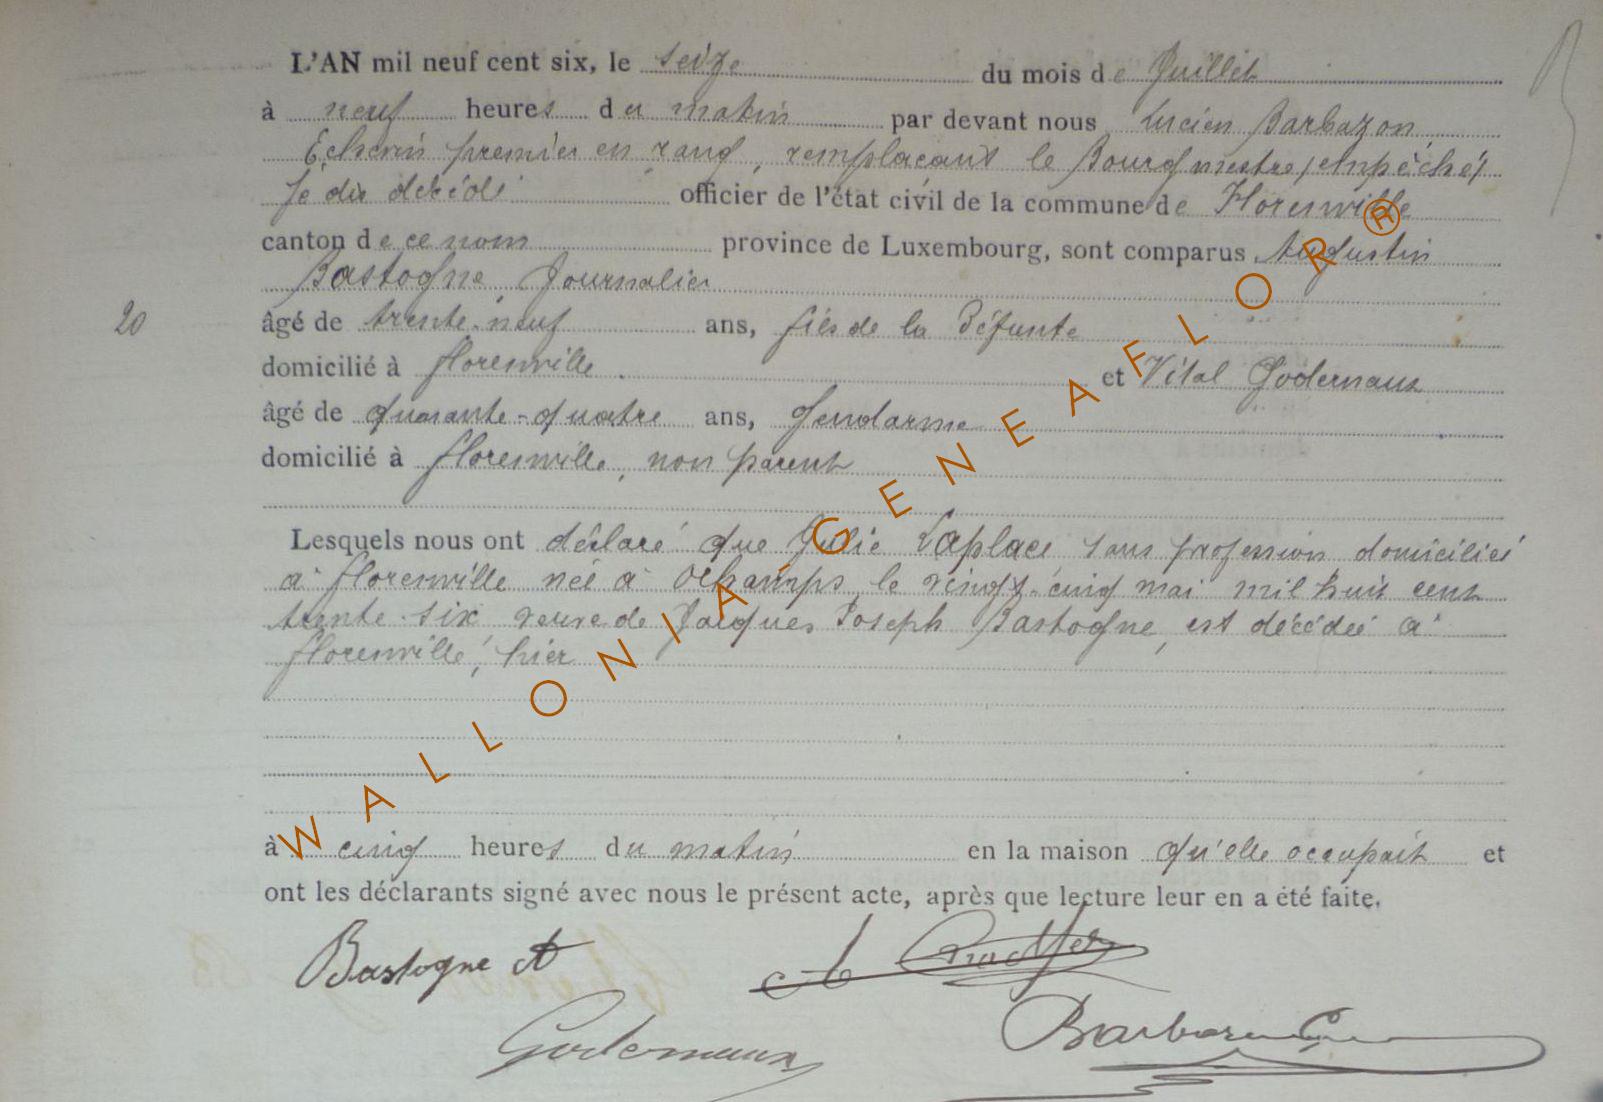 L'AN mil neuf cent six, le seize du mois de Juillet
à neuf heures du matin par devant nous Lucien Barbazon,
Echevin premier en rang, remplaçant le Bourgmestre, empêché,
dit décédé officier de l'état civil de la commune de Florenville
canton de ce nom province de Luxembourg, sont comparus Augustin
Bastogne, Journalier
20 âgé de trente-neuf ans, fils de la défunte
domicilié à florenville. et Vital Godernaux
âgé de quarante-quatre ans, Gendarme
domicilié à florenville, non parent
Lesquels nous ont déclaré que Julie Laplace sans profession domiciliée
à florenville née à Ochamps le vingt-cinq mai mil huit cent
trente-six veuve de Jacques Joseph Bastogne, est décédée à
florenville, hier
à cinq heures du matin en la maison qu'elle occupait et
ont les déclarants signé avec nous le présent acte, après que lecture leur en a été faite.
Bastogne A
Godernaux
Barbazon
WALLONIA-GENEAFLOR®